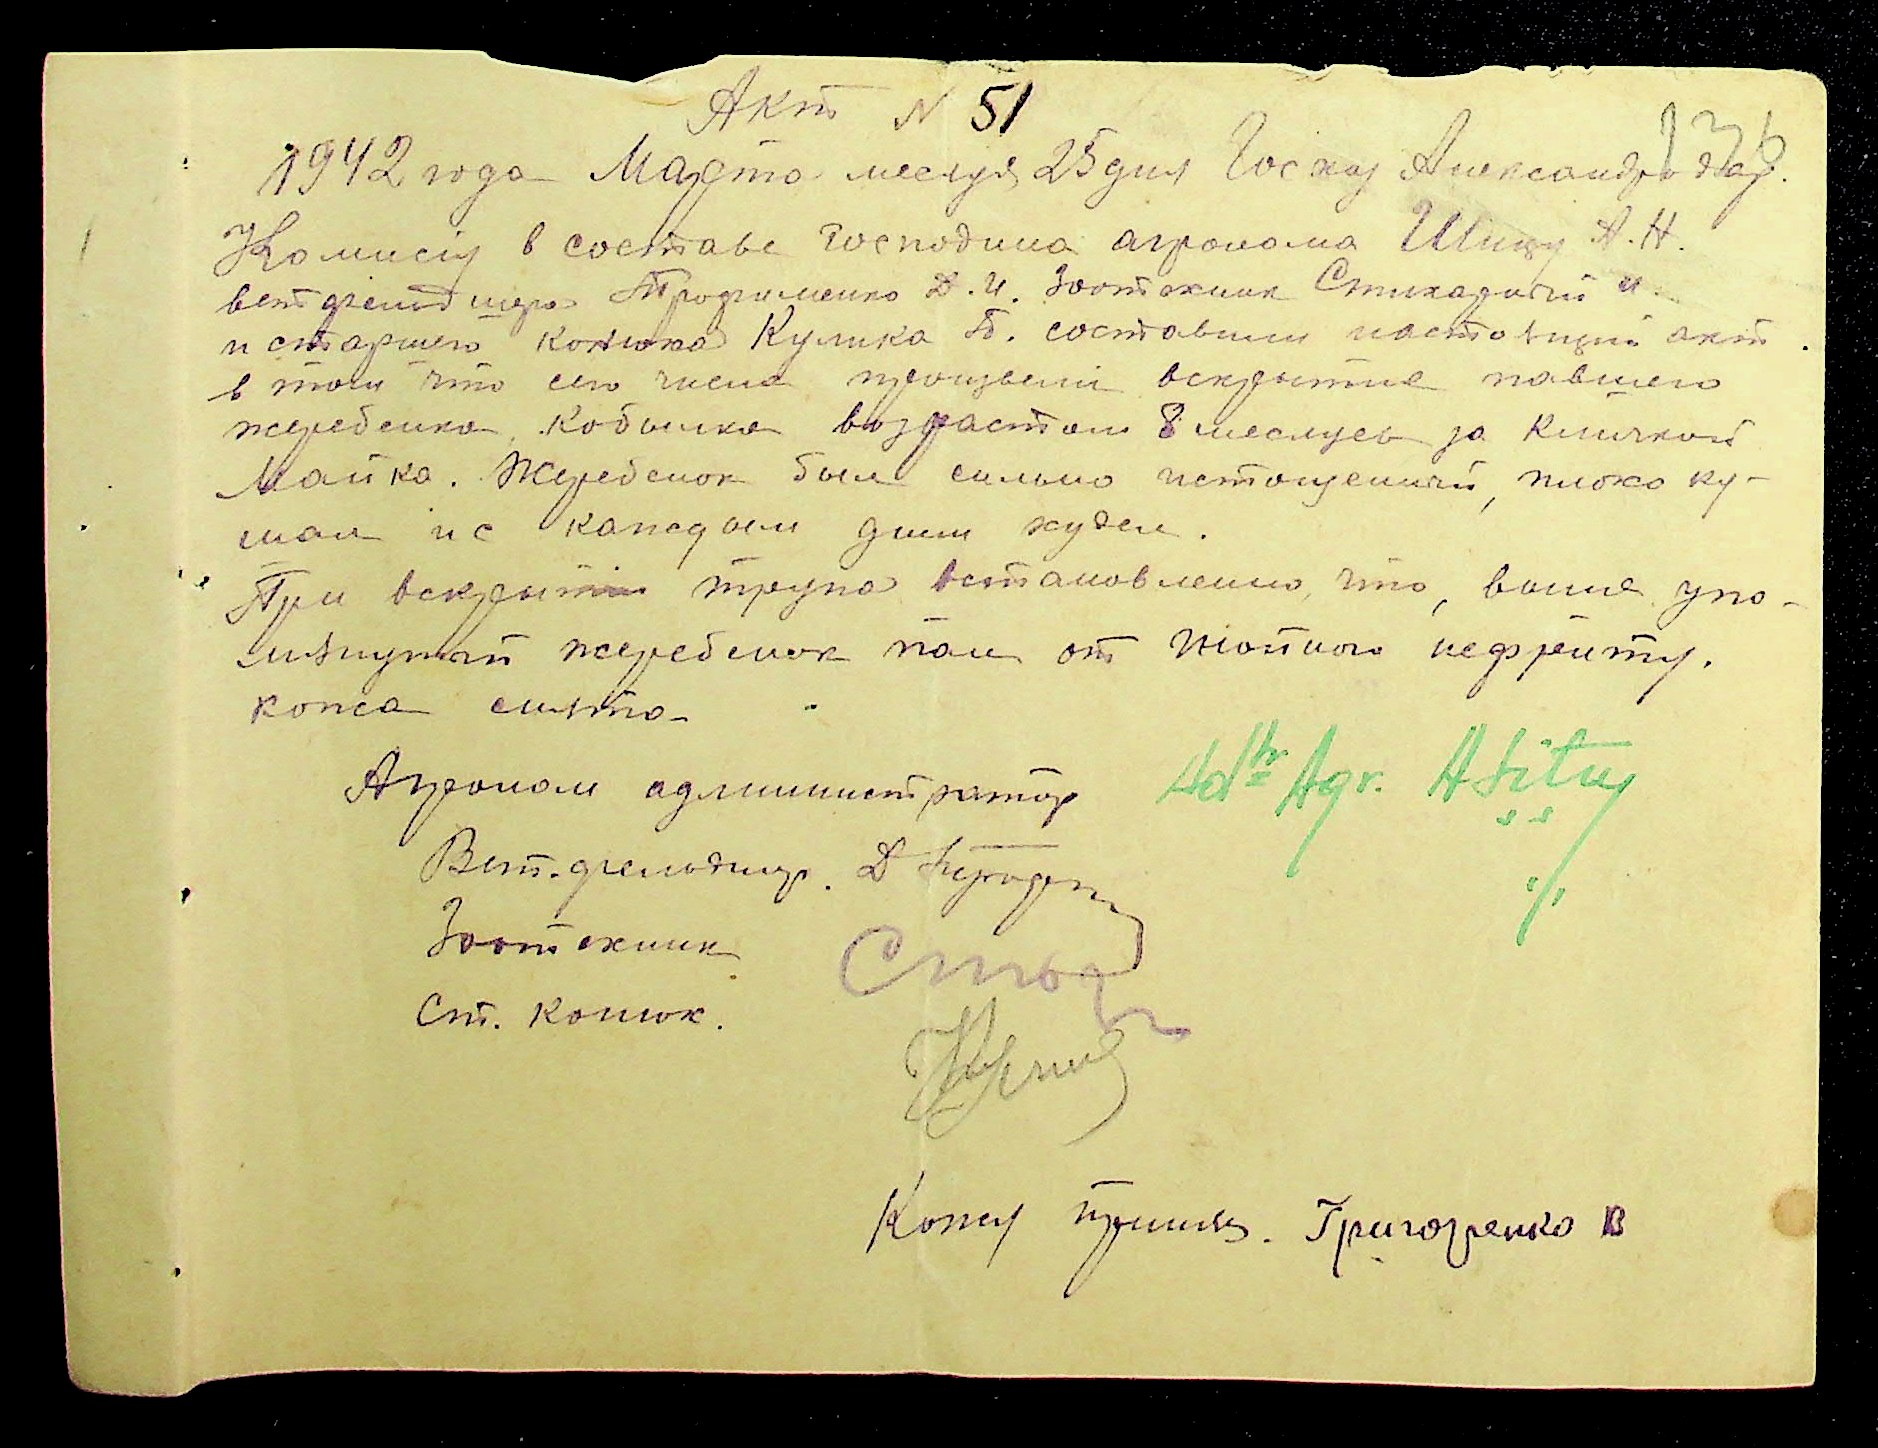 Акт N 51
136
1942 года Марта месяця 25 дня Госхоз Александродар.
Комисия в составе Господина агронома Шицу А.Н.
ветфельдшера Трофименко Д.И. Зоотехник и
и старшего конюха Кулика П. составили настоящий акт
в том что сего числа произвели вскрытие павшего
жеребенка. Кобылка возрастом 8 месяцев за кличкой
Майка. Жеребенок был сильно истощенный, плохо ку-
шал и с каждым днем худел.
При вскрытии трупа встановленно, что, выше упо-
мянутый жеребенок пал от нефриту.
кожа снята
Агроном администратор Adtr Agr. ASitu
Вет.фельдшер. Д
Зоотехник
Ст. конюх.
Кожу принял. Григоренко В